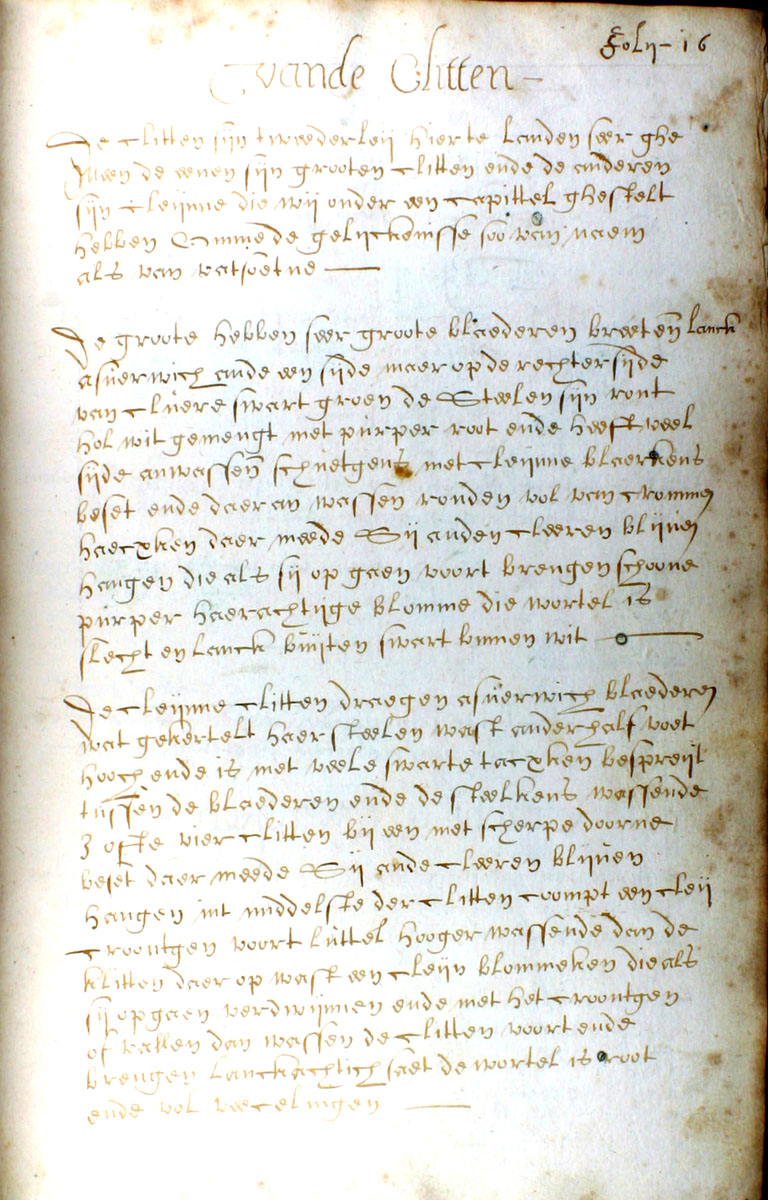 Folij - 16
vande Clitten -
De clitten sijn tweederleij hier te landen seer ghe
Meen de eenen sijn grooten clitten ende de anderen
sijn cleijnne die wij onder een capittel ghestelt
hebben Omme de gelijckenisse soo van naem
als van
De groote hebben seer groote blaederen breet en lanck
asuerwich ande een sijde maer op de rechter sijde
van cluere swart groen de Steelen sijn ront
hol wit gemengt met purper root ende heeft veel
sijde anwassen schuetgens met cleijnne blaerkens
beset ende daer an wassen ronden vol van crommen
haecxken daer meede Sij anden cleeren blijven
hangen die als sij op gaen voort brengen schoone
purper haerachtijge blomme die wortel is
slecht en lanck buijten swart binnen wit
De cleijnne clitten draegen asuerwich blaederen
wat gekertelt haer steelen wast anderhalf voet
hooch ende is met veele swarte tacxken bespreijt
tussen de blaederen ende de steelkens wassende
3 ofte vier clitten bij een met scherpe doorne
beset daer meede Sij ande cleeren blijven
hangen int middelste der clitten coompt een cleij
croontgen voort luttel hooger wassende dan de
klitten daer op wast een cleijn blommeken die als
sij opgaen verdwijnnen ende met het croontgen
of vallen dan wassen de clitten voort ende
brengen lanckachtich saet de wortel is root
ende vol veecelingen